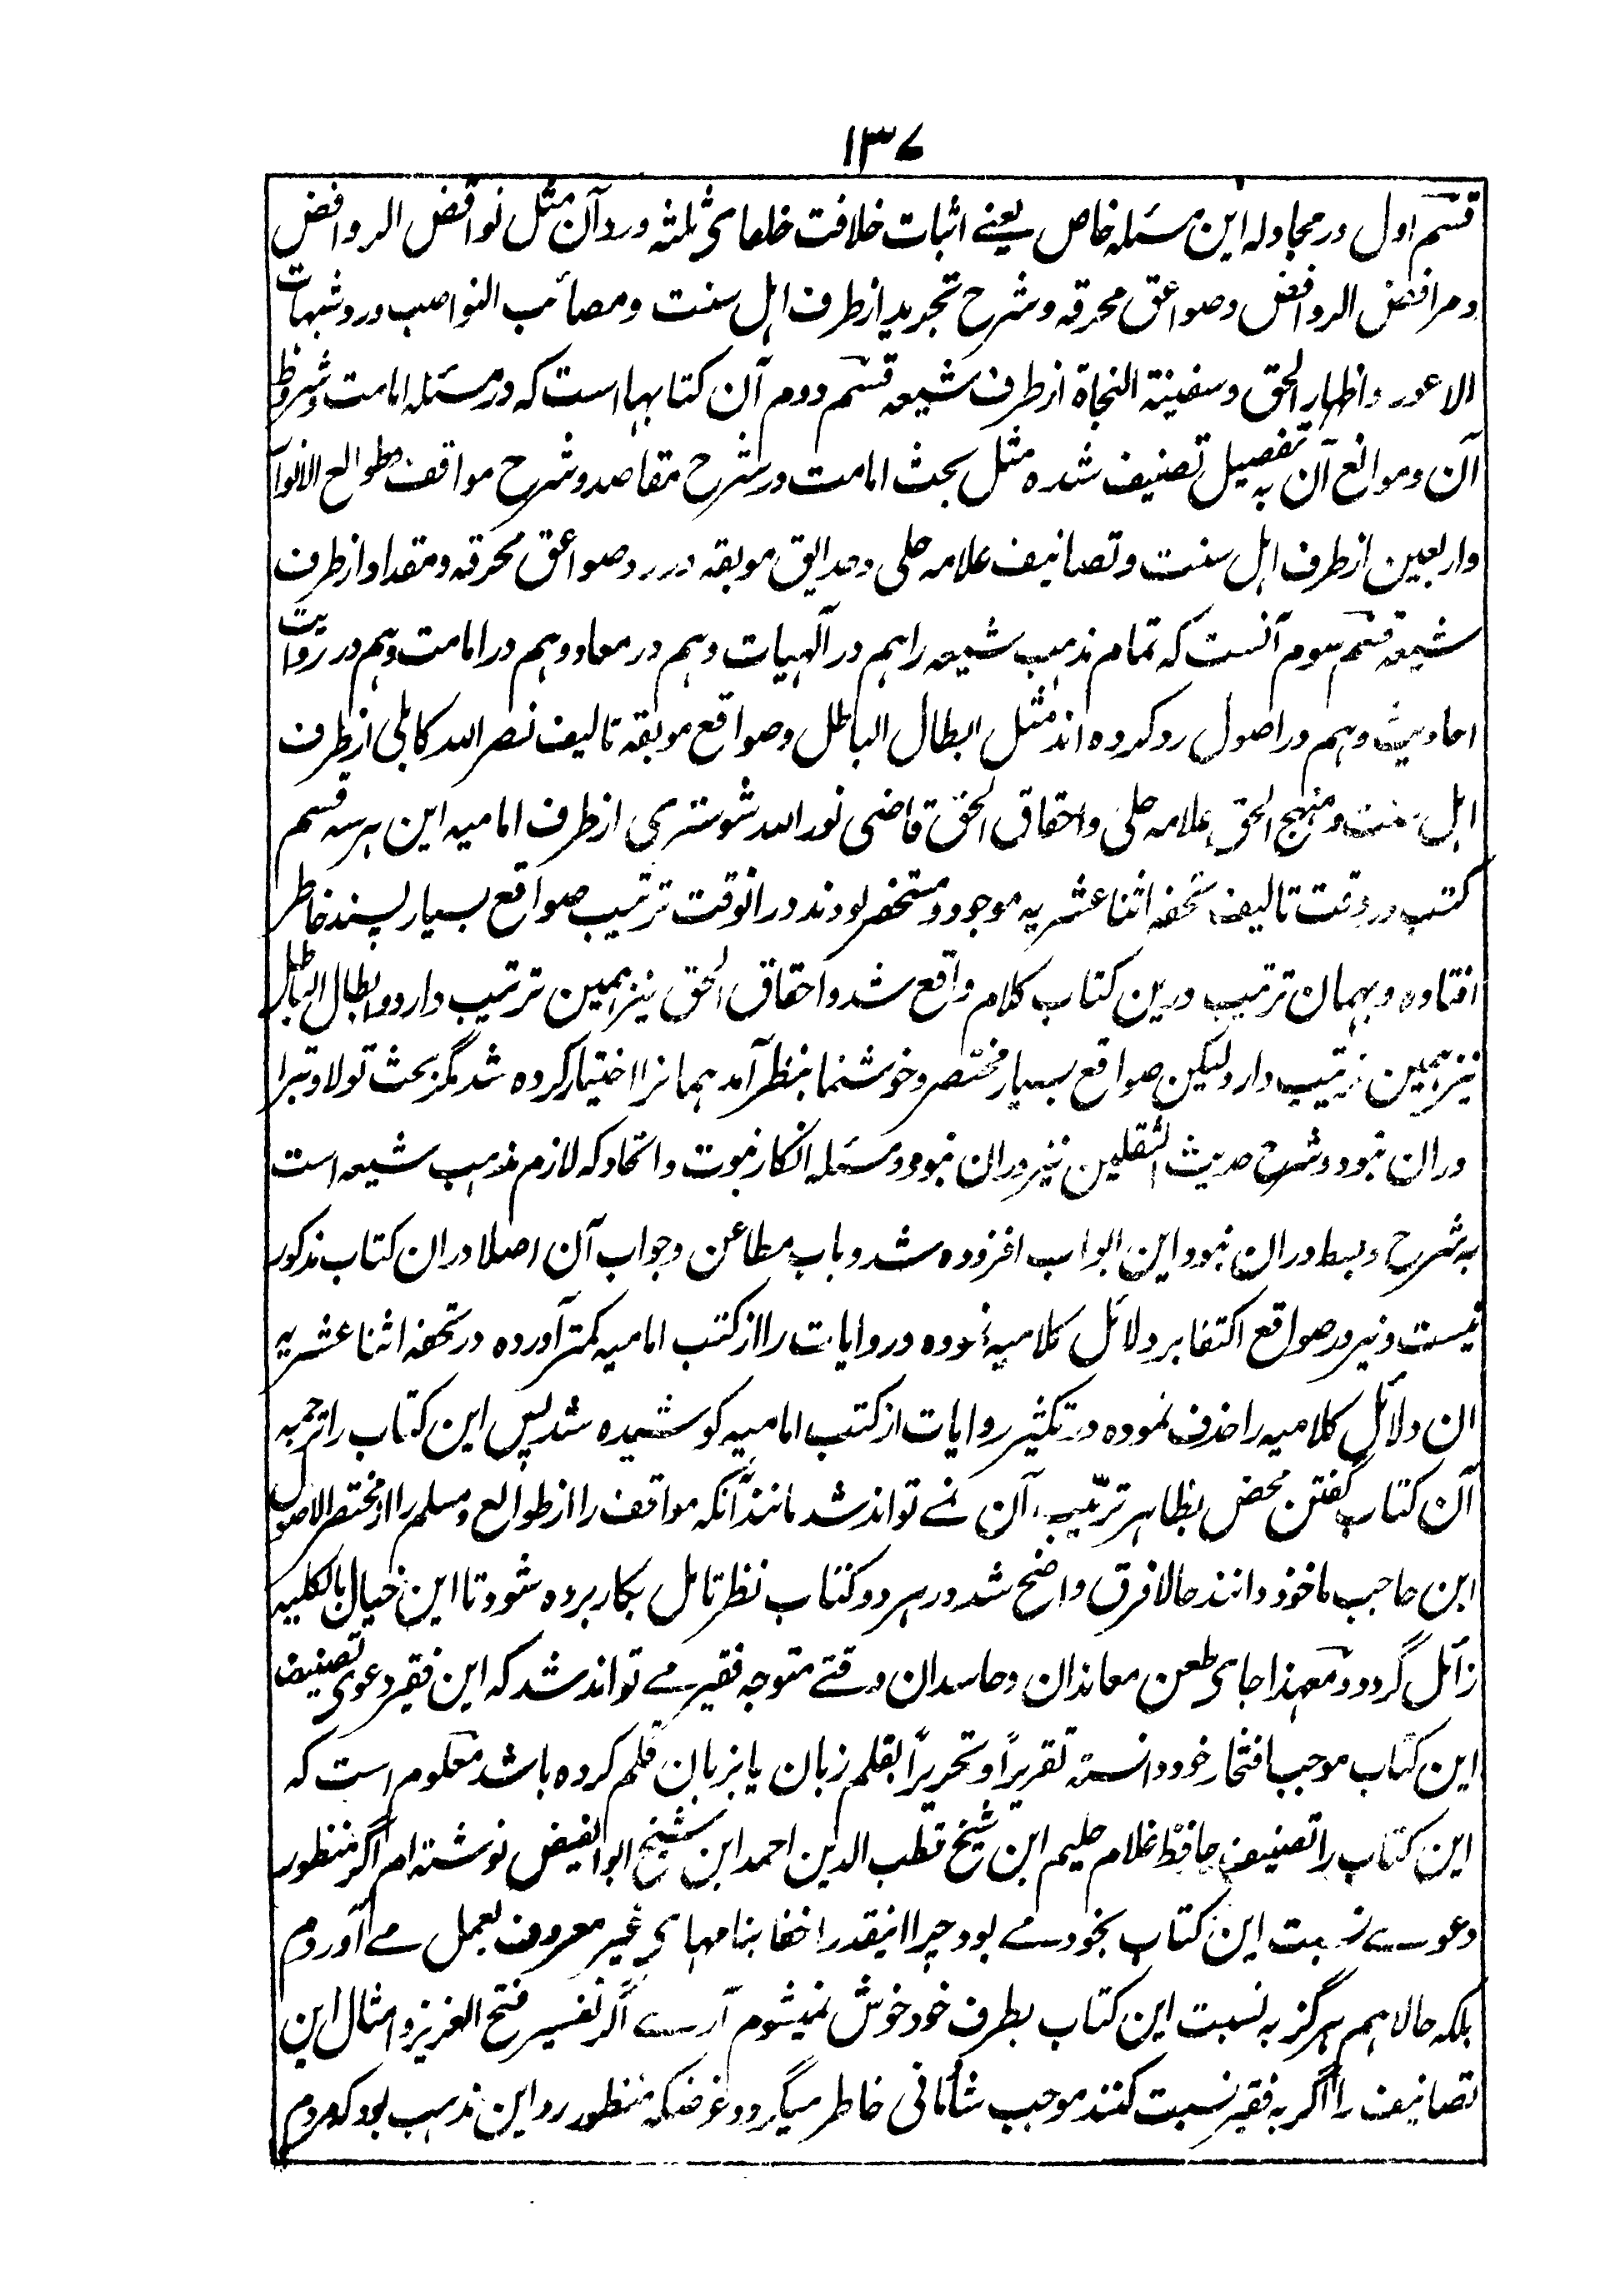 ۱۳۷
قسم اول در مجادله این مسئله خاص یعنے اثبات خلافت خلفای ثلثه ورد آن مثل نواقض الروافض
ومرافض الروافض وصواعق محرقه وشرح تجرید از طرف اہل سنت ومصائب النواصب ورد شبہات
الاعور واظہار الحق وسفینة النجاة از طرف شیعه قسم دوم آن کتابہا است که در مسئله امامت وشروط
آن وموانع آن به تفصیل تصنیف شده مثل بحث امامت در شرح مقاصد وشرح مواقف وطوالع الانوار
واربعین از طرف اہل سنت وتصانیف علامه حلی وحدایق موبقه در رد صواعق محرقه ومقداد از طرف
شیعه قسم سوم آنست که تمام مذہب شیعه را ہم در آلہیات وہم در معاد وہم در امامت وہم در روایت
احادیث وہم در اصول رد کرده اند مثل ابطال الباطل وصواقع موبقه تالیف نصر الله کابلی از طرف
اہل سنت ومنہج الحق علامه حلی واحقاق الحق قاضی نور الله شوستری از طرف امامیه این ہر سه قسم
کتب در وقت تالیف تحفه اثنا عشریه موجود ومستحضر بودند در انوقت ترتیب صواقع بسیار پسند خاطر
افتاده وبہمان ترتیب درین کتاب کلام واقع شد واحقاق الحق نیز ہمین ترتیب دارد وابطال الباطل
نیز ہمین ترتیب دارد لیکن صواقع بسیار مختصر وخوشنما بنظر آمد ہمانرا اختیار کرده شد مگر بحث تولا وتبرا
دران نبود وشرح حدیث الثقلین نیز دران نبود ومسئله انکار نبوت واتحاد که لازم مذہب شیعه است
به شرح وبسط دران نبود این ابواب افزوده شد وباب مطاعن وجواب آن اصلا دران کتاب مذکور
نیست ونیز در صواقع اکتفا بر دلائل کلامیه نموده وروایات را از کتب امامیه کمتر آورده در تحفه اثنا عشریه
ان دلائل کلامیه را حذف نموده در تکثیر روایات از کتب امامیه کوشیده شد پس این کتاب را ترجمه
آن کتاب گفتن محض بظاہر ترتیب آن نے تواند شد مانند آنکه مواقف را از طوالع ومسلم را از مختصر الاصول
ابن حاجب ماخوذ دانند حالا فرق واضح شد در ہر دو کتاب نظر تامل بکار برده شود تا این خیال بالکلیه
زائل گردد ومعہذا جای طعن معاندان وحاسدان وقتے متوجه فقیر مے تواند شد که این فقیر دعوی تصنیف
این کتاب موجب افتخار خود دانسته تقریراً وتحریراً بقلم زبان یا بزبان قلم کرده باشد معلوم است که
این کتاب را تصنیف حافظ غلام حلیم ابن شیخ قطب الدین احمد ابن شیخ ابو الفیض نوشته ام اگر منظور
دعوے نسبت این کتاب بخود مے بود چرا اینقدر اخفا بنامہای غیر معروف بعمل مے آوردم
بلکه حالا ہم ہرگز به نسبت این کتاب بطرف خود خوش نمیشوم آرے اگر تفسیر فتح العزیز وامثال این
تصانیف را اگر به فقیر نسبت کنند موجب شادمانی خاطر میگردد غرضکه منظور رد این مذہب بود که مردم